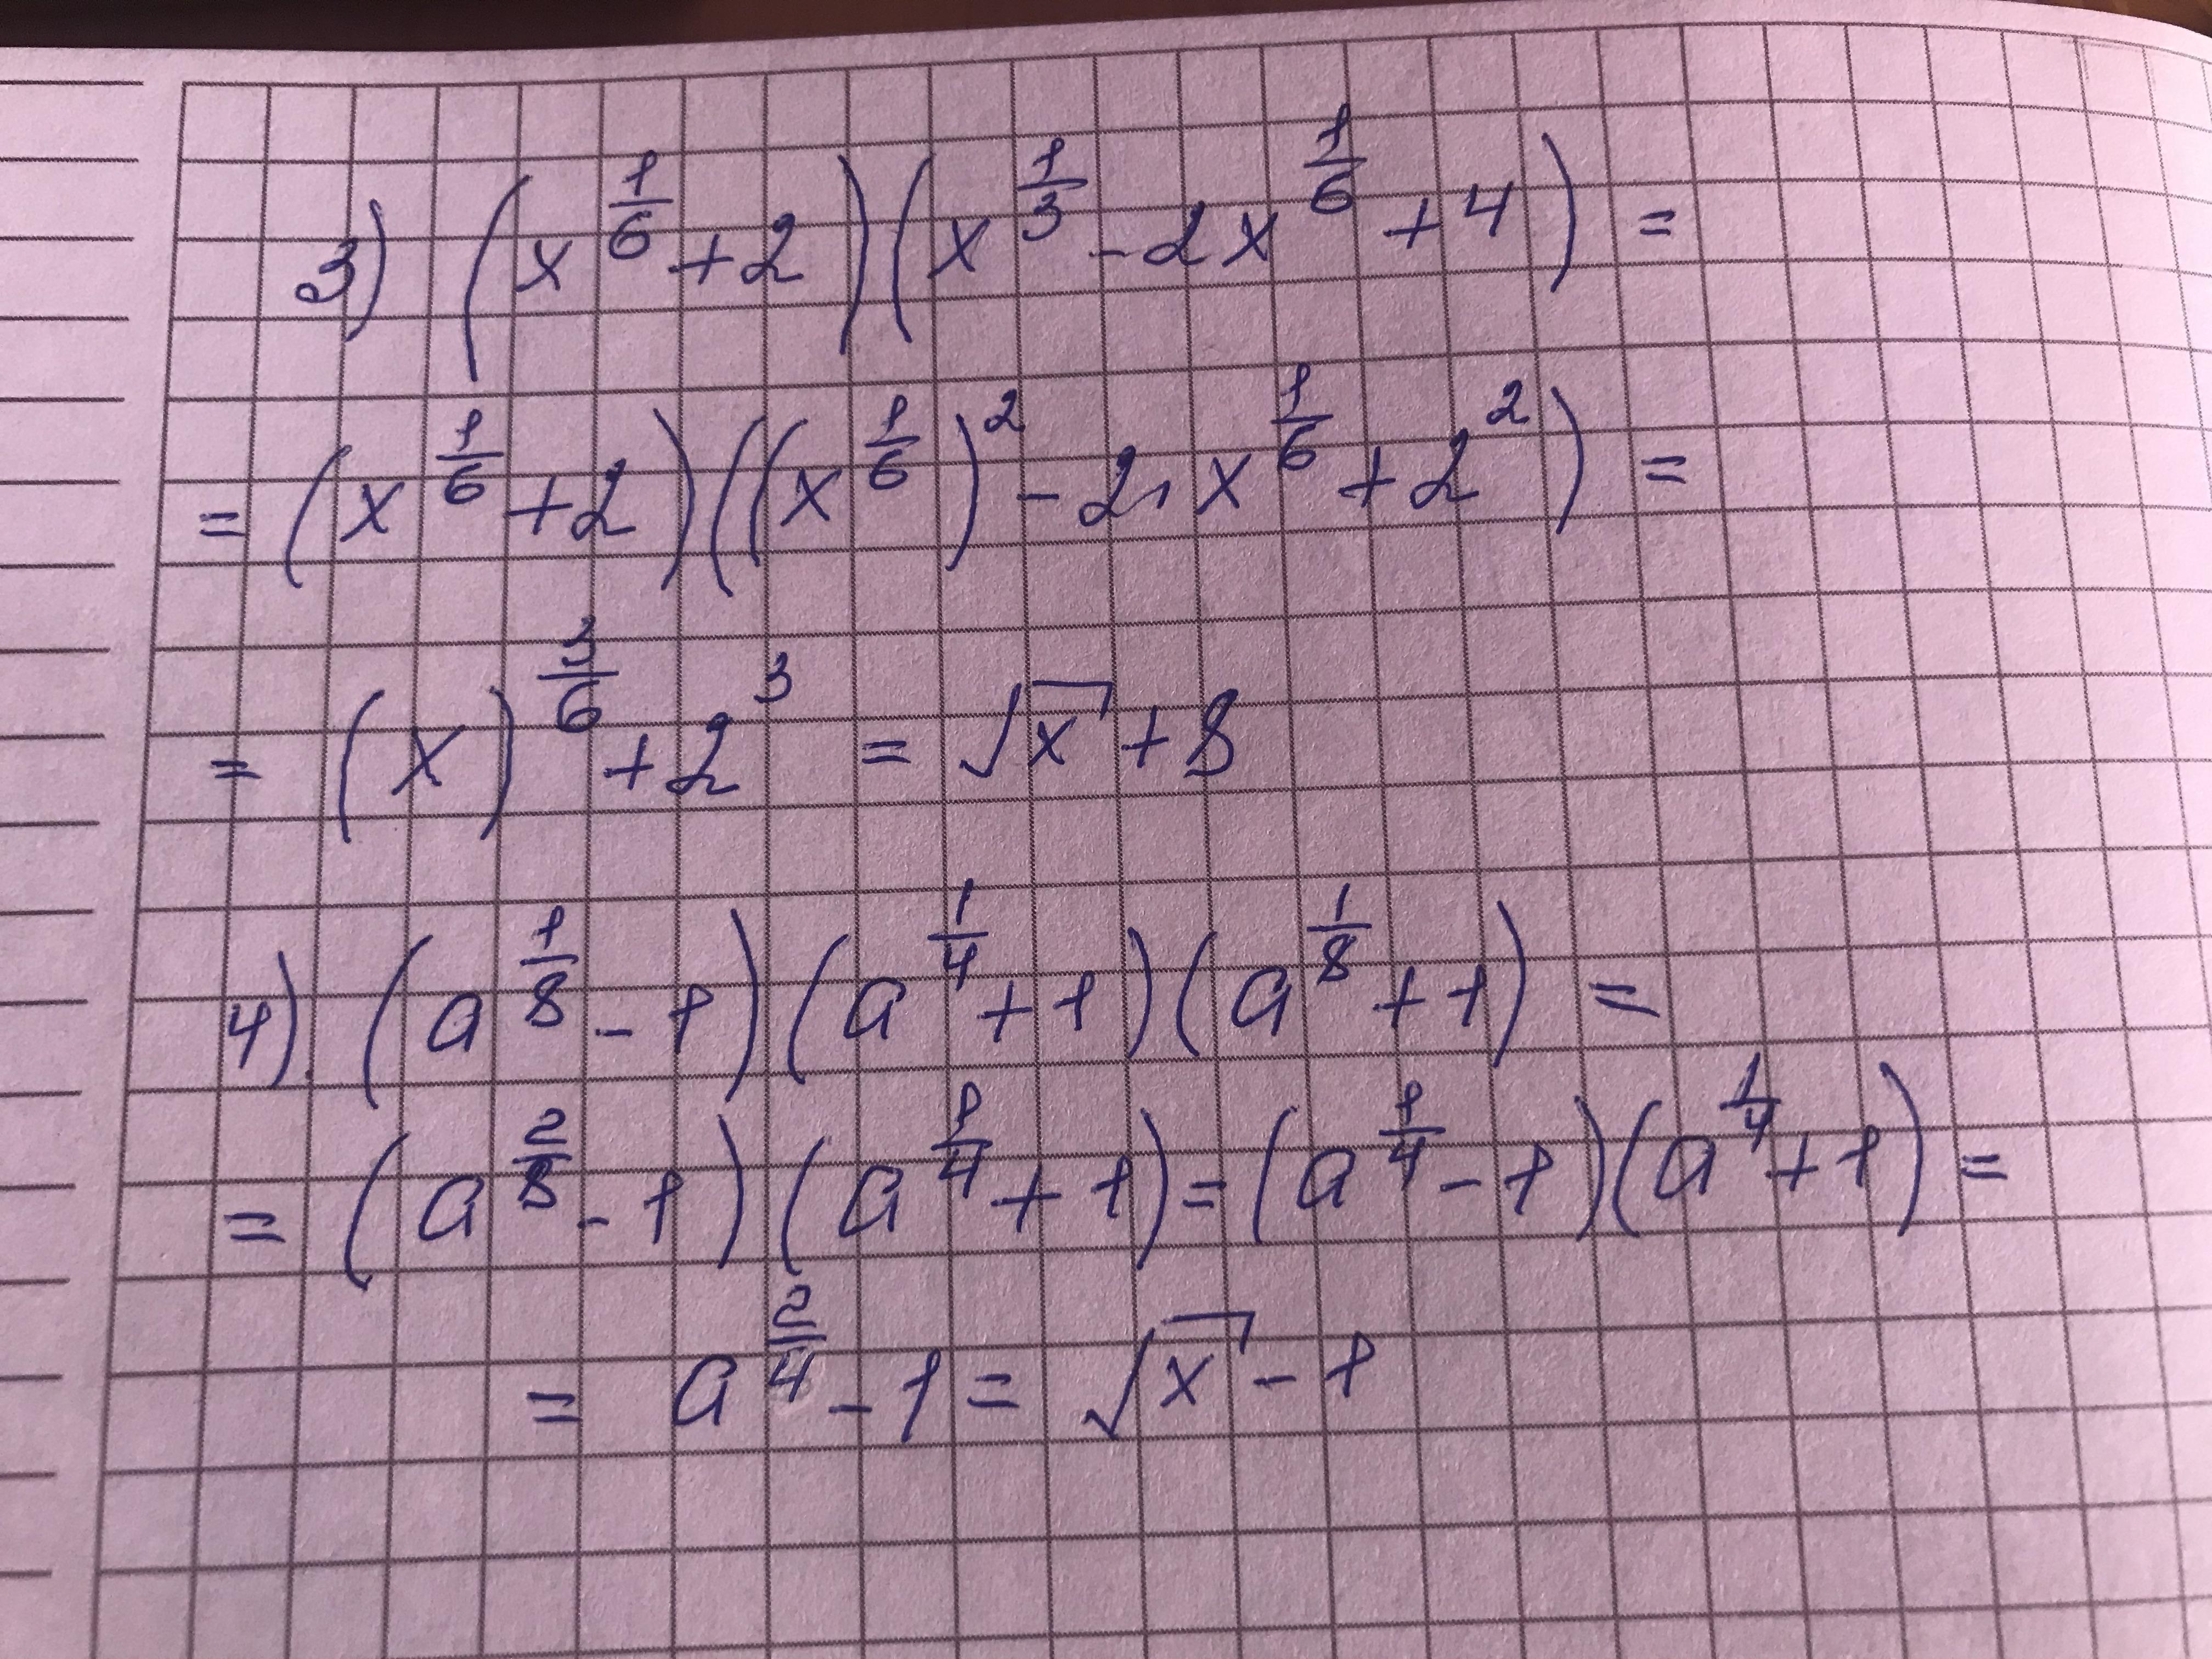 3) (x^(1/6) + 2)(x^(1/3) - 2x^(1/6) + 4) =
= (x^(1/6) + 2)((x^(1/6))^2 - 2·x^(1/6) + 2^2) =
= (x)^(3/6) + 2^3 = √x + 8
4). (a^(1/8) - 1)(a^(1/4) + 1)(a^(1/8) + 1) =
= (a^(2/8) - 1)(a^(1/4) + 1) = (a^(1/4) - 1)(a^(1/4) + 1) =
= a^(2/4) - 1 = √x - 1